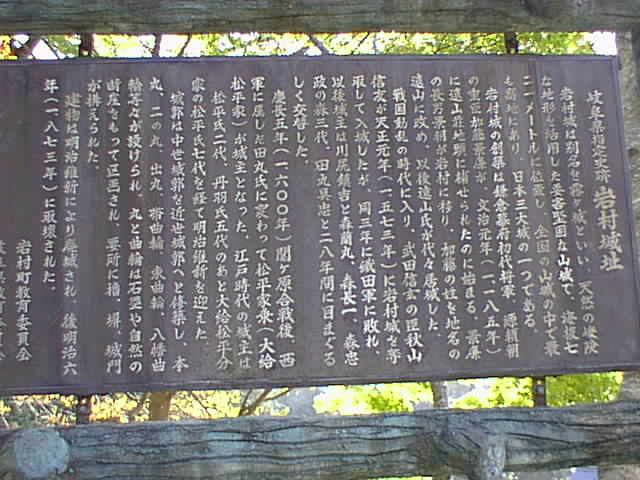 岐阜県指定史跡 岩村城址
岩村城は別名を霧ヶ城といい、天然の峻険
な地形を活用した要害堅固な山城で、海抜七
二一メートルに位置し、全国の山城の中で最
も高地にあり、日本三大山城の一つである。
岩村城の創築は鎌倉幕府初代将軍、源頼朝
の重臣加藤景廉が、文治元年(一一八五年)
に遠山荘地頭に補せられたのに始まる。景廉
の長男景朝が岩村に移り、加藤の姓を地名の
遠山に改め、以後遠山氏が代々居城した
戦国動乱の時代に入り、武田信玄の臣秋山
信友が天正元年(一五七三年)に岩村城を奪
取して入城したが、同三年に織田軍に敗れ、
以後城主は川尻鎮吉と森蘭丸、森長一、森忠
政の森三代、田丸具忠と二八年間に目まぐる
しく交替した。
慶長五年(一六〇〇年)関ヶ原合戦後、西
軍に属した田丸氏に変わって松平家乗(大給
松平家)が城主となった。江戸時代の城主は
松平氏二代、丹羽氏五代のあと大給松平分
家の松平氏七代を経て明治維新を迎えた
城郭は中世城郭を近世城郭へと修築し、本
丸、二の丸、出丸、帯曲輪、東曲輪、八幡曲
輪等々が設けられ、丸と曲輪は石塁や自然の
断崖をもって区画され、要所に櫓、塀、城門
が構えられた
建物は明治維新により廃城され、後明治六
年(一八七三年)に取壊された。
岩村町教育委員会
岐阜県教育委員会